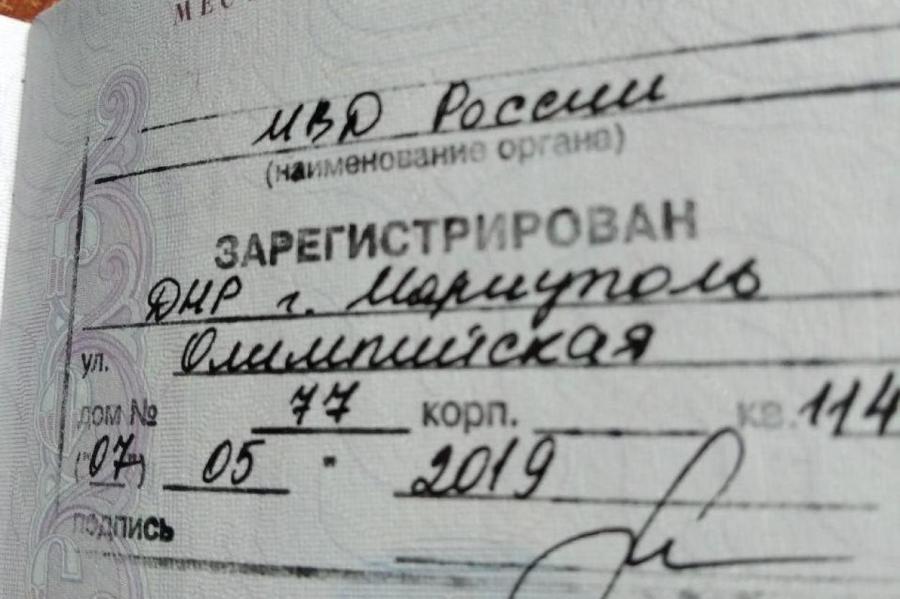 МВД России
(наименование органа)
ЗАРЕГИСТРИРОВАН
ДНР г. Мариуполь
ул. Олимпийская
дом № 77 корп. кв. 114
("07") 05 2019
подпись